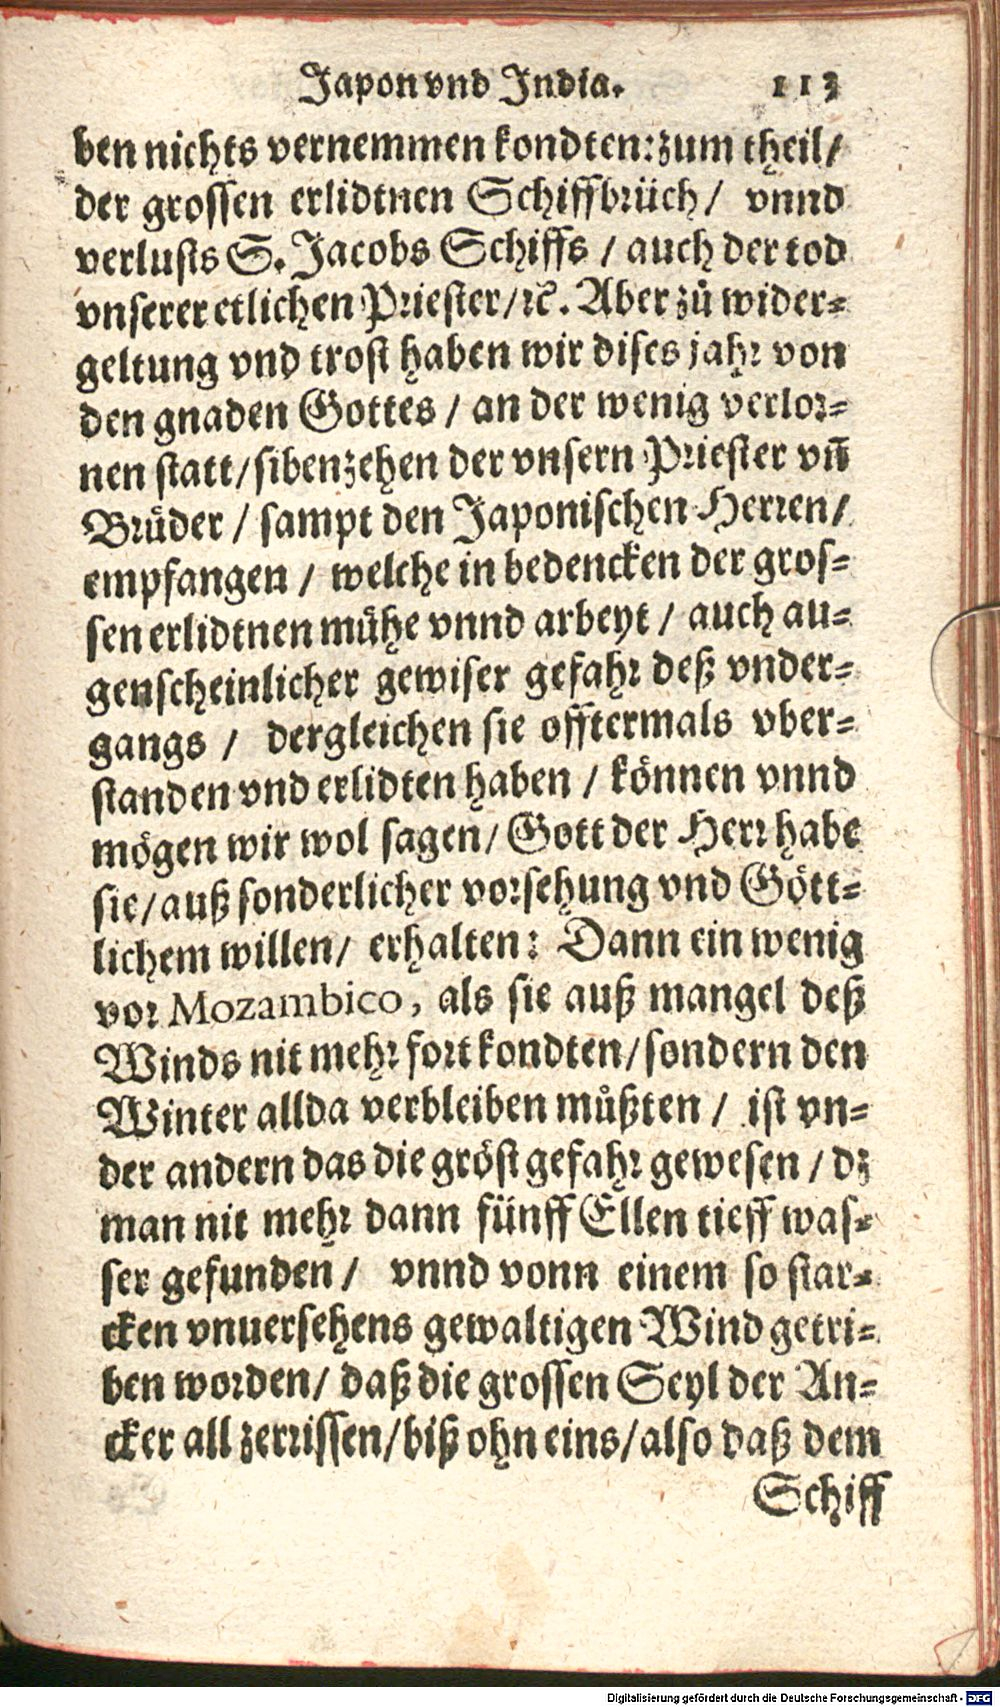 Japon vnd India. 113
ben nichts vernemmen kondten: zum theil/
der grossen erlidtnen Schiffbrüch/ vnnd
verlusts S. Jacobs Schiffs / auch der tod
vnserer etlichen Priester/ ꝛc. Aber zů wider⸗
geltung vnd trost haben wir dises jahr von
den gnaden Gottes / an der wenig verlor⸗
nen statt/ sibenzehen der vnsern Priester vn̄
Brůder / sampt den Japonischen Herren/
empfangen / welche in bedencken der gros⸗
sen erlidtnen můhe vnnd arbeyt / auch au⸗
genscheinlicher gewiser gefahr deß vnder⸗
gangs / dergleichen sie offtermals vber⸗
standen vnd erlidten haben / können vnnd
mögen wir wol sagen/ Gott der Herr habe
sie/ auß sonderlicher vorsehung vnd Gött⸗
lichem willen/ erhalten: Dann ein wenig
vor Mozambico, als sie auß mangel deß
Winds nit mehr fort kondten/ sondern den
Winter allda verbleiben můßten / ist vn⸗
der andern das die gröst gefahr gewesen / dz
man nit mehr dann fünff Ellen tieff was⸗
ser gefunden / vnnd vonn einem so star⸗
cken vnuersehens gewaltigen Wind getri⸗
ben worden/ daß die grossen Seyl der An⸗
cker all zerrissen/ biß ohn eins/ also daß dem
Schiff
Digitalisierung gefördert durch die Deutsche Forschungsgemeinschaft - DFG